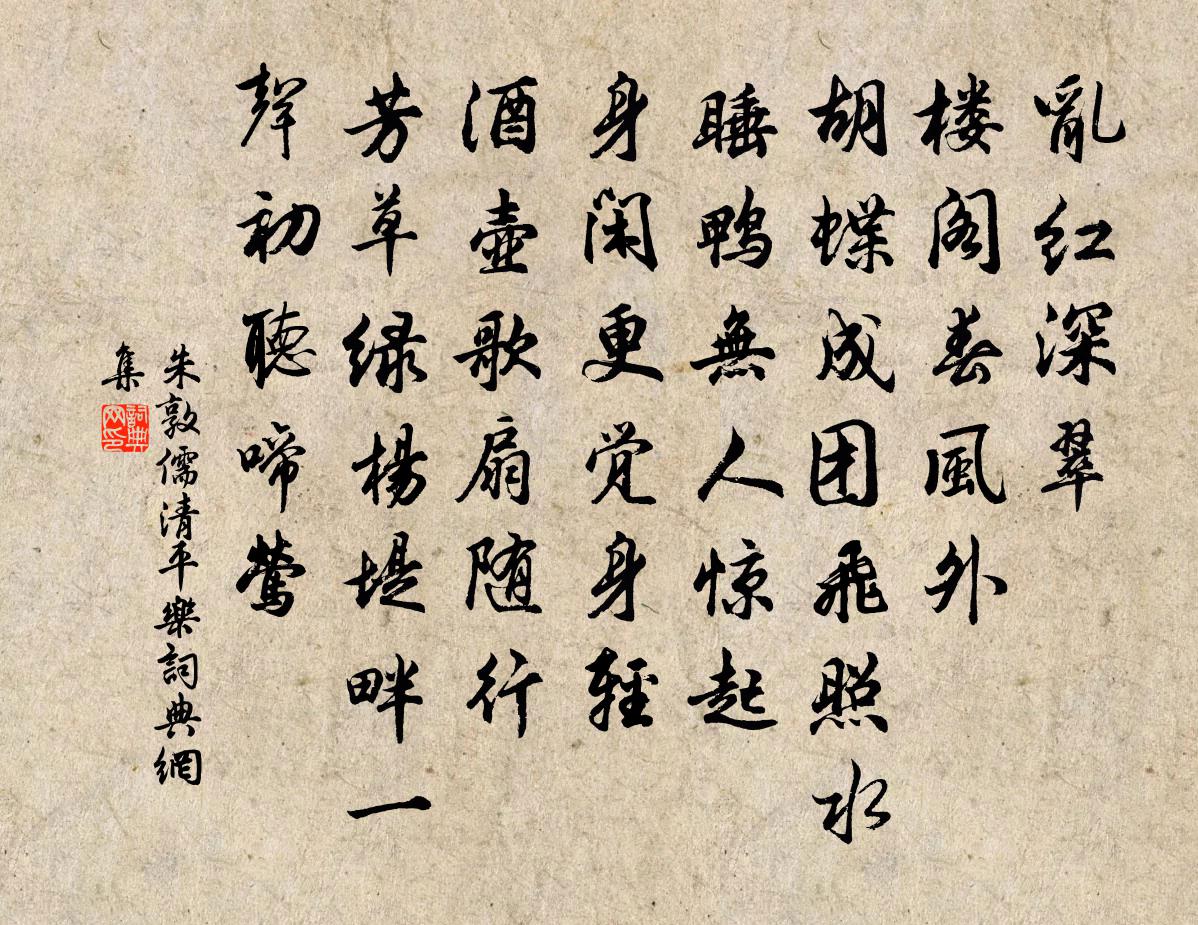 亂红深翠
楼阁春風外
胡蝶成团飛照水
睡鸭無人惊起
身闲更觉身輕
酒壺歌扇随行
芳草绿楊堤畔一
聲初聽啼鶯
朱敦儒清平樂詞典網
集
詞典网印